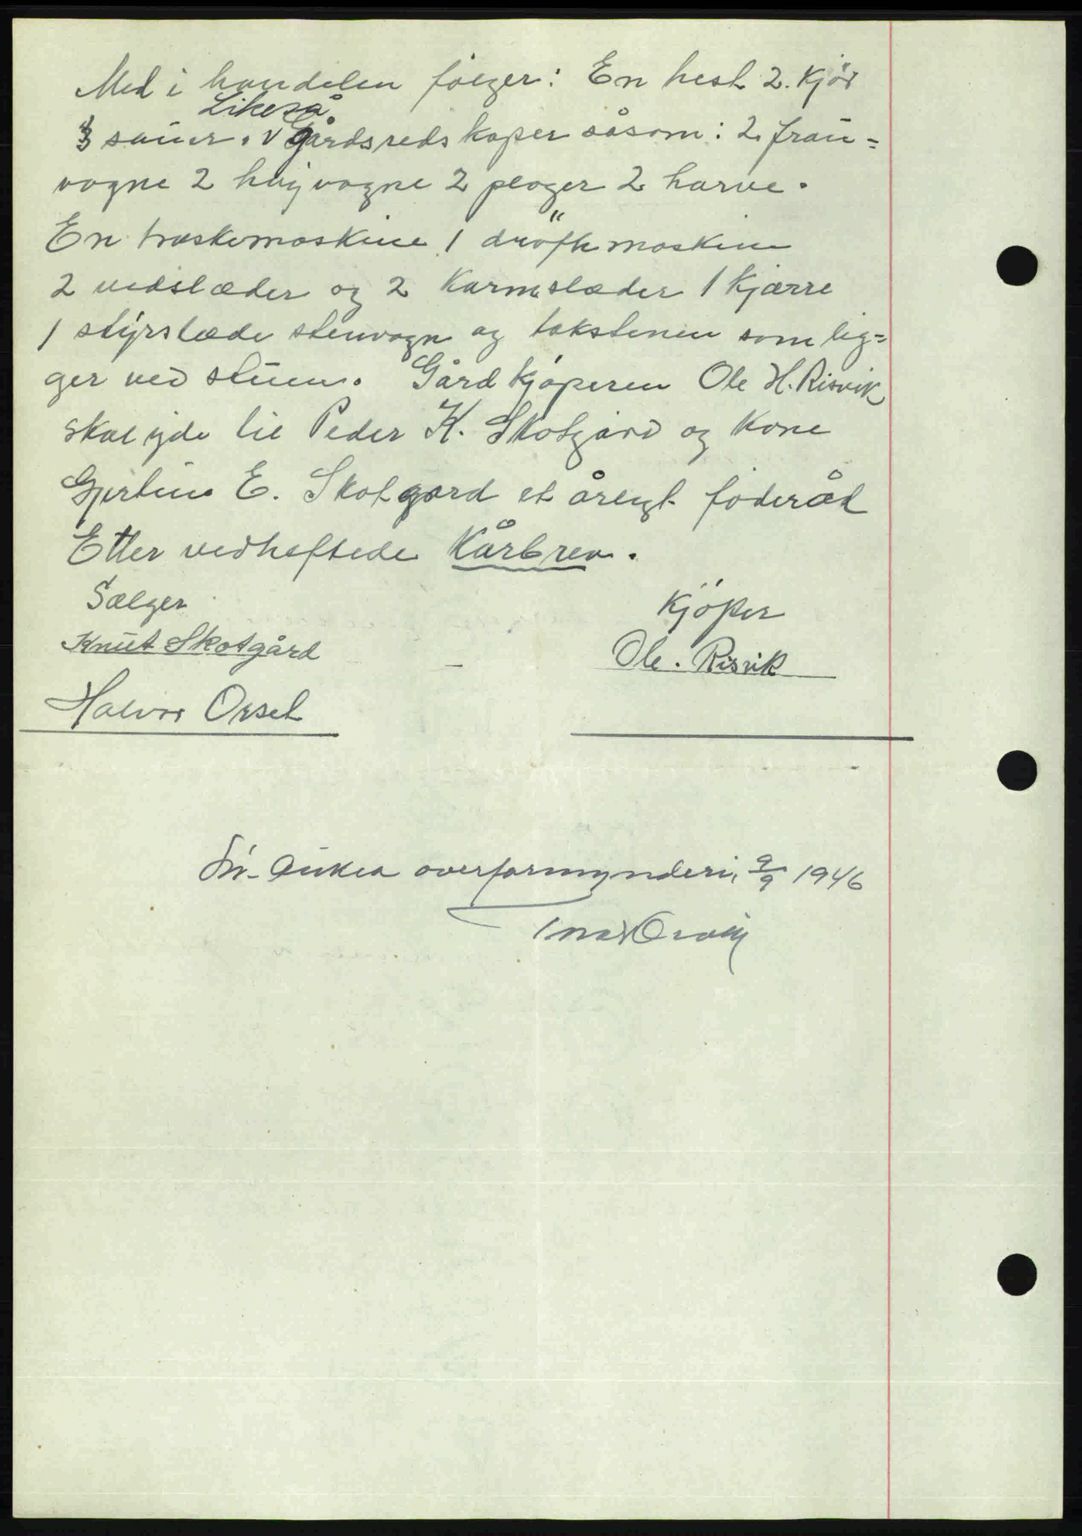 Med i handelen følger: En hest 2. Kjør
3 sauer. Likeså Gårdsredskaper såsom: 2 frau=
vogne 2 høyvogne 2 ploger 2 harve.
En træskemaskine 1 drøftemaskine
2 vedslæder og 2 Karmslæder 1 Kjærre
1 styrslæde stenvogn og takstenen som lig=
ger ved stuen. Gårdkjøperen Ole H. Risvik
skal yde til Peder K. Skotgård og Kone
Gjertine E. Skotgård et årligt føderåd
Etter vedheftede Kårbrev.
Sælger
Kjøper
Knut Skotgård
Ole. Risvik
Halvor Orset
overformynderi, 9/9 1946